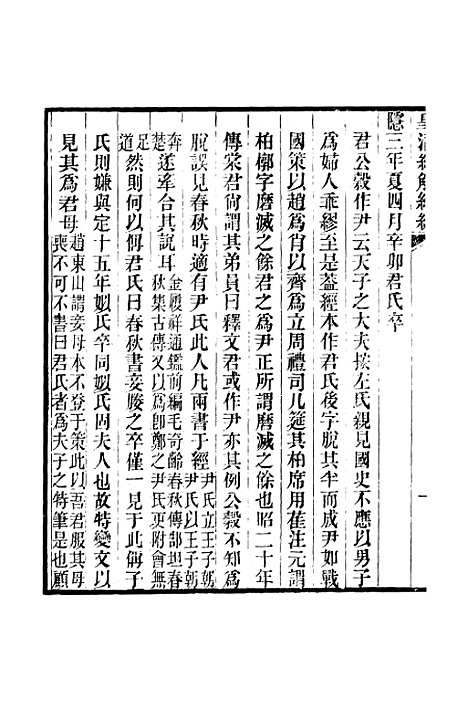 皇淸經解續編
隱三年夏四月辛卯君氏卒
君公穀作尹云天子之大夫按左氏親見國史不應以男子
爲婦人乖繆至是蓋經本作君氏後字脫其半而成尹如戰
國策以趙爲肖以齊爲立周禮司几筵其柏席用萑注元謂
柏㮳字磨滅之餘君之爲尹正所謂磨滅之餘也昭二十年
傳棠君尙謂其弟員曰釋文君或作尹亦其例公穀不知爲
脫誤見春秋時適有尹氏此人凡兩書于經尹氏立王子朝
尹氏以王子朝
奔楚遂牽合其說耳金履祥通鑑前編毛奇齡春秋傳郝坦春
秋集古傳又以爲卽鄭之尹氏更附會無
足道然則何以偁君氏曰春秋書妾媵之卒僅一見于此偁子
氏則嫌與定十五年姒氏卒同姒氏固夫人也故特變文以
見其爲君母趙東山謂妾母本不登于策此以吾君服其母
喪不可不書曰君氏者爲夫子之特筆是也顧
一